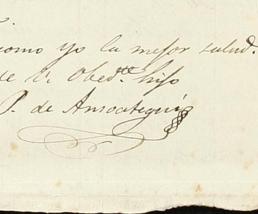 como yo la mejor salud.
de V. Obedte. hijo
P. de Ansoategui